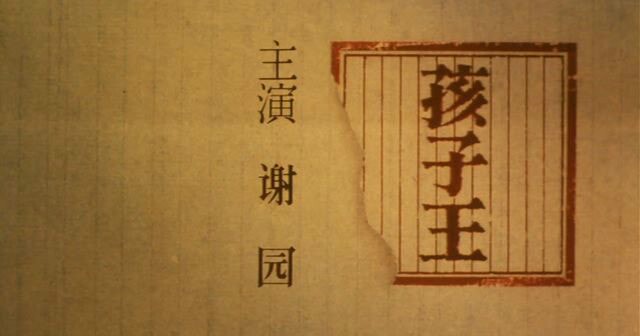 孩子王
主演 谢园